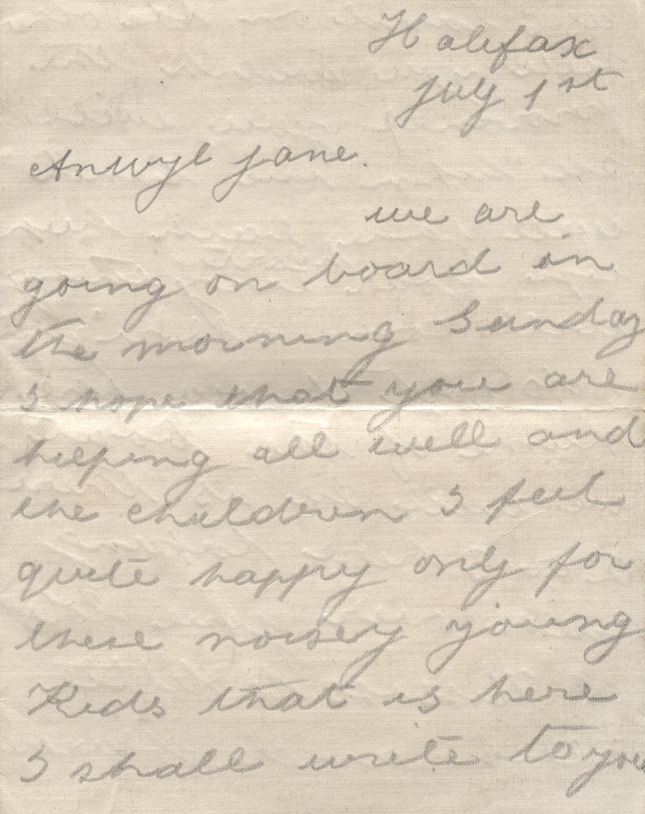 Halifax
July 1st
Anwyl Jane.
we are
going on board in
the morning Sunday
I hope that you are
helping all well and
the children I feel
quite happy only for
these noisey young
Kids that is here
I shall write to you